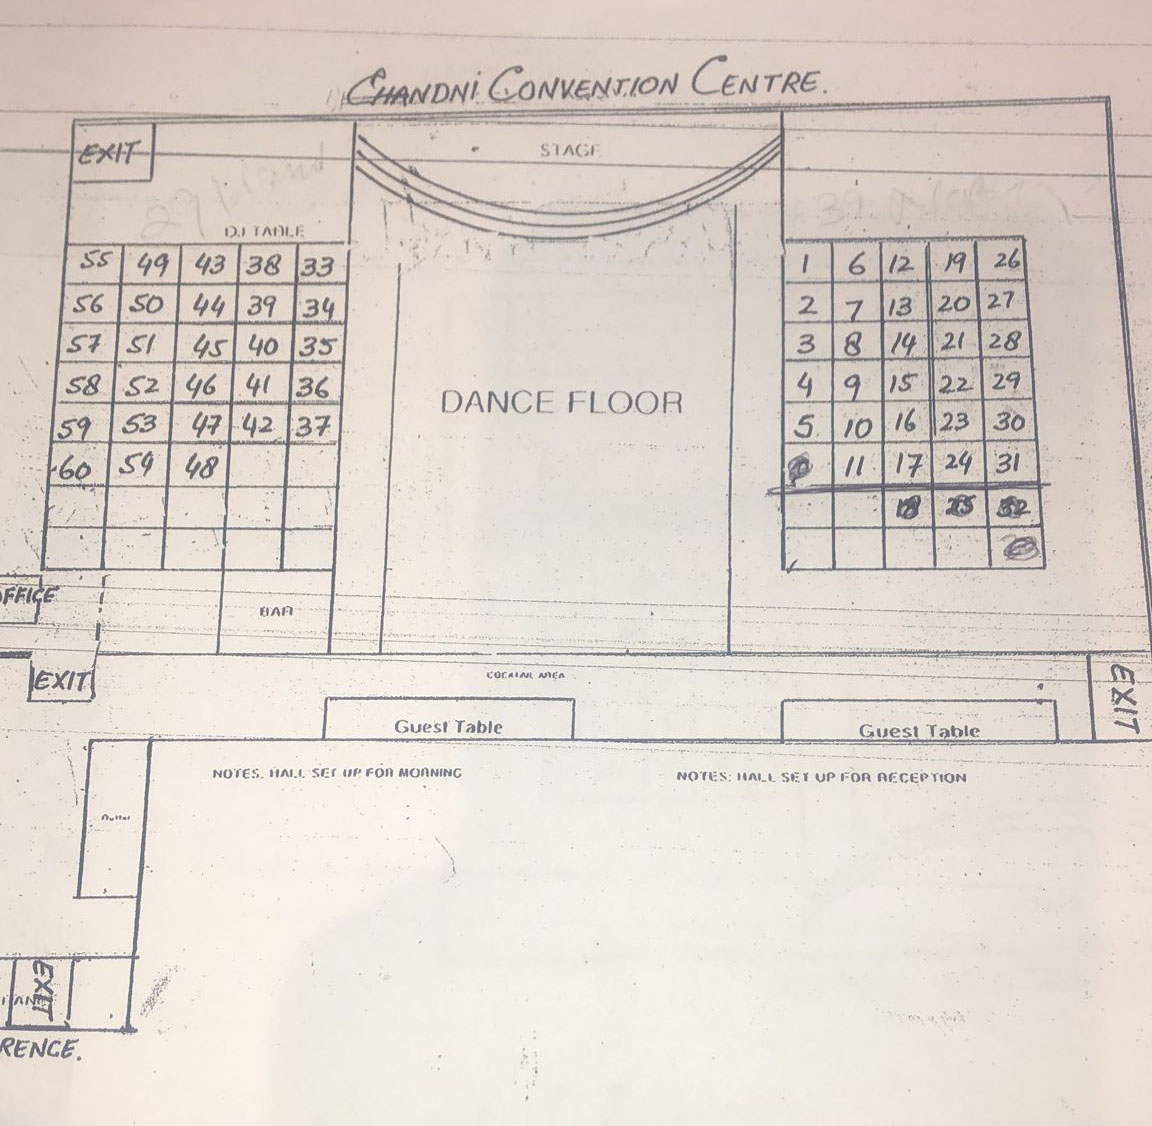 CHANDNI CONVENTION CENTRE.
EXIT
STAGE
DJ TABLE
55 49 43 38 33
56 50 44 39 34
57 51 45 40 35
58 52 46 41 36
59 53 47 42 37
60 54 48
1 6 12 19 26
2 7 13 20 27
3 8 14 21 28
4 9 15 22 29
5 10 16 23 30
11 17 24 31
18 25 32
DANCE FLOOR
OFFICE
BAR
EXIT
COCKTAIL AREA
EXIT
Guest Table
Guest Table
NOTES: HALL SET UP FOR MORNING
NOTES: HALL SET UP FOR RECEPTION
EXIT
RENCE.